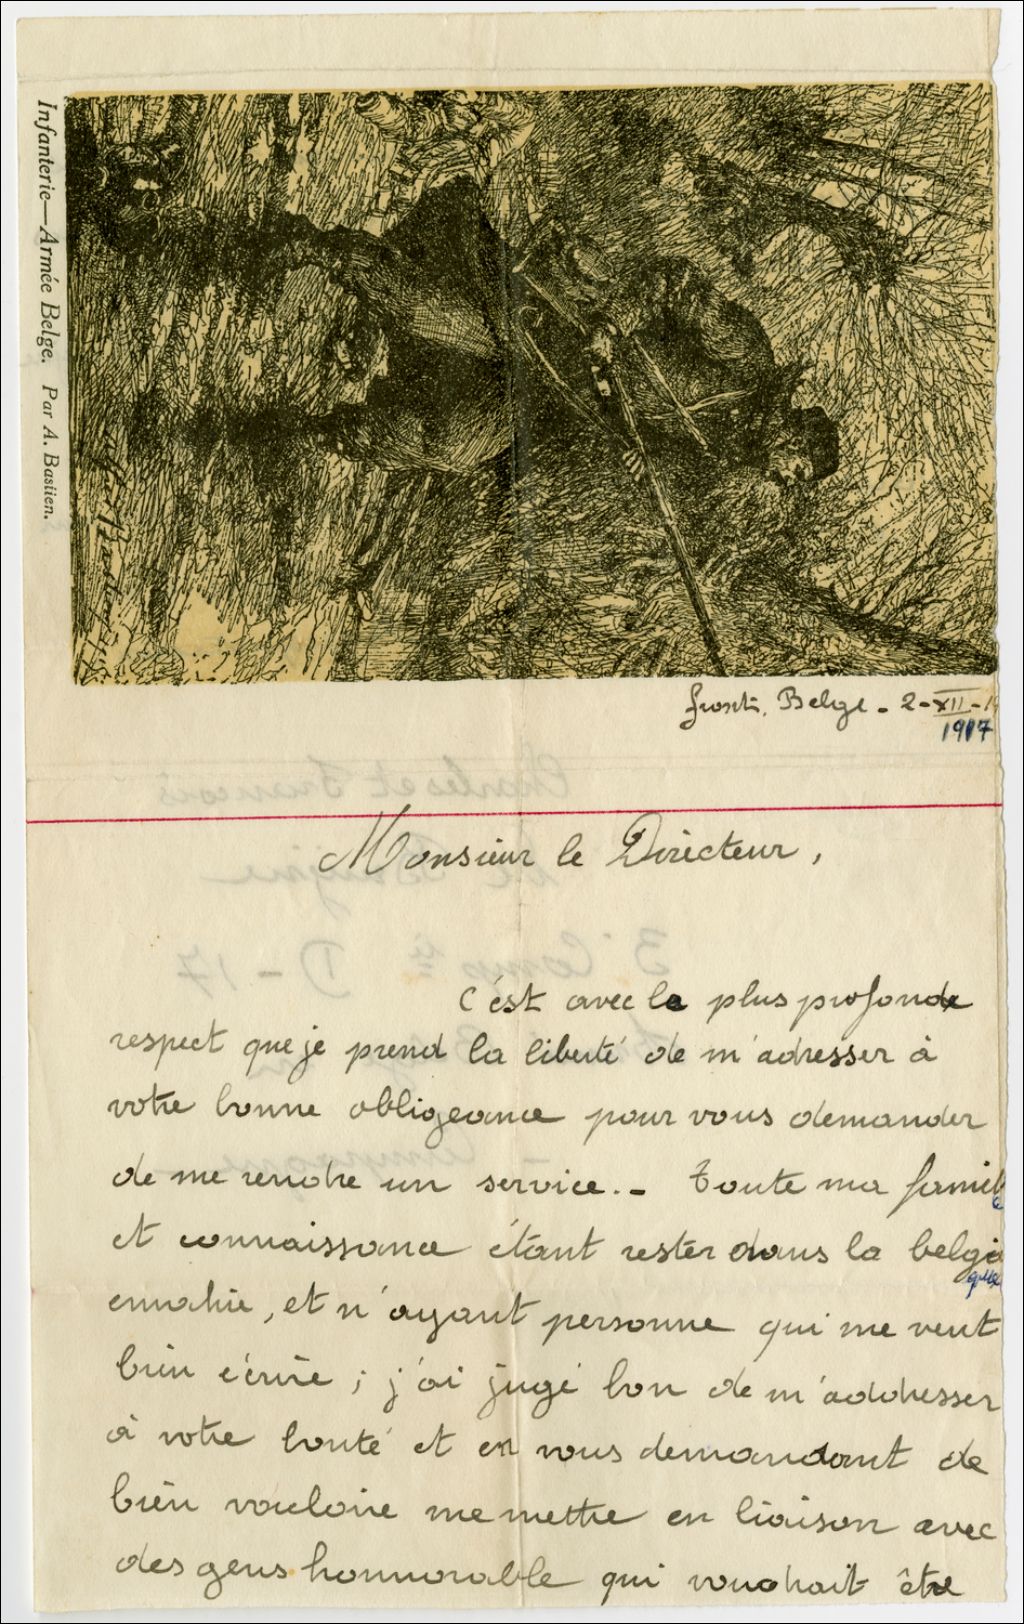 Infanterie—Armée Belge. Par A. Bastien.
front. Belge - 2-XII-1
1917
Monsieur le Directeur,
C'est avec le plus profonde
respect que je prend la liberté de m'adresser à
votre bonne obligeance pour vous demander
de me rendre un service.- Toute ma famille
et connaissance étant rester dans la belgique
envahie, et n'ayant personne qui me veut
bien écrire; j'ai jugé bon de m'addresser
à votre bonté et en vous demandant de
bien vouloire me mettre en liaison avec
des gens honnorable qui voudrait être
Charles et François
3e Compie D-17